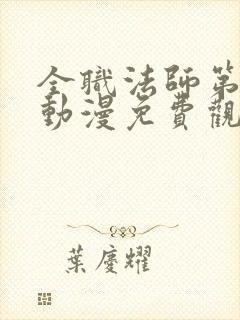 全職法師第
動漫免費觀
葉慶耀